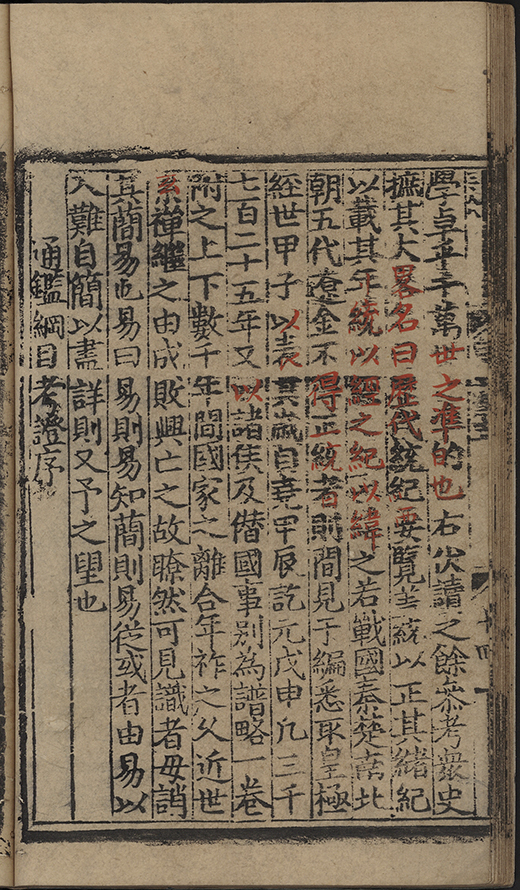 學卓乎千萬世之準的也右讀之餘叅考衆史
摭其大畧名曰歷代統紀要覽並統以正其緒紀
以載其年統以經之紀以緯之若戰國秦楚南北
朝五代遼金不得正統者則間見于編悉取皇極
經世甲子以表其歲自堯甲辰訖元戊申凡三千
七百二十五年又以諸侯及僣國事别為譜略一卷
附之上下數千年間國家之離合年祚之久近世
系禪繼之由成敗興亡之故暸然可見識者毋誚
其簡易也易曰易則易知簡則易從或者由易以
入難自簡以盡詳則又予之望也
通鑑綱目考證序